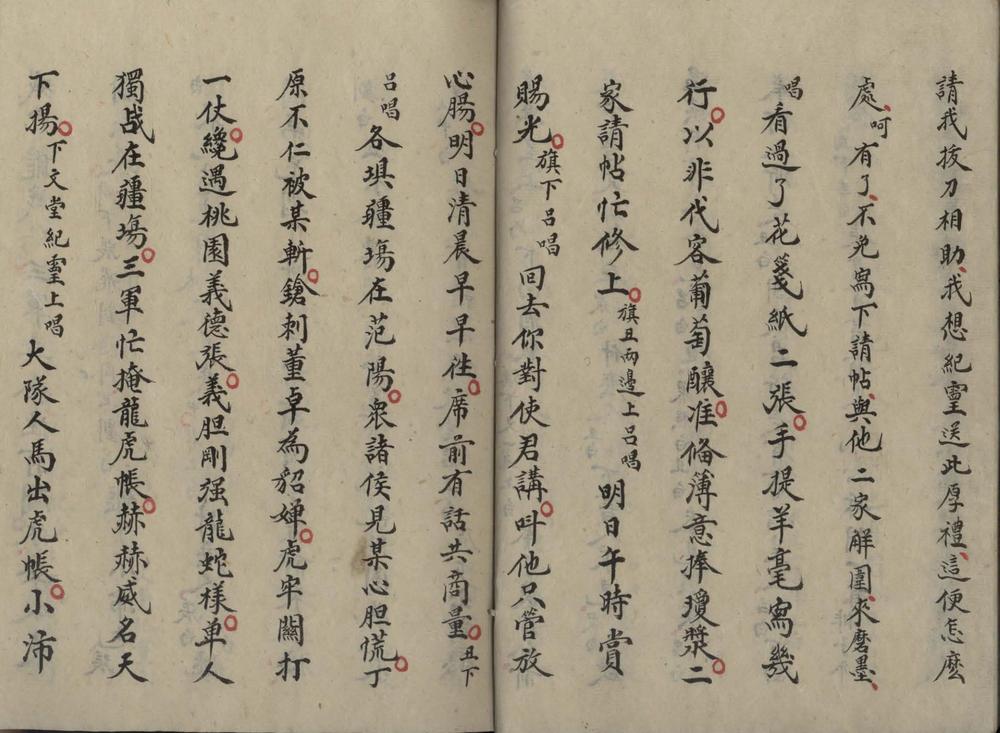 請我拔刀相助我想紀靈送此厚禮這便怎麽
處呵有了不免寫下請帖與他二家解圍來磨墨
唱看過了花箋紙二張手提羊毫寫幾
行以非代客葡萄釀准俻薄意捧瓊漿二
家請帖忙修上旗丑両邊上呂唱明日午時賞
賜光旗下呂唱回去你對使君講呌他只管放
心腸明日清晨早早往席前有話共商量丑下
呂唱各埧疆塲在范陽衆諸侯見某心胆慌丁
原不仁被某斬鎗刺董卓為貂婵虎牢關打
一仗纔遇桃園義德張義胆剛强龍蛇樣单人
獨战在疆塲三軍忙掩龍虎帳赫赫威名天
下揚下文堂紀靈上唱大隊人馬出虎帳小沛